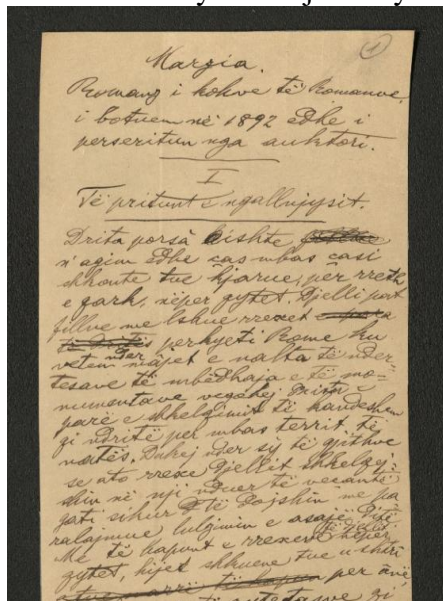 1
Marzia.
Romanz i kohve të Romanve,
i botuem në 1892 edhe i
perseritun nga auktori.
I
Të pritunt e ngallnjysit.
Drita porsà kishte
n'agim edhe cas mbas casi
shkonte tue hjarue, për rreth
e fark, nëper qytet. Djelli port
fillue me lshue rrezet
perhyeti Rome ku
vetem nder majet e nalta të nder
tesave të mbëdhaja e të mo=
numentave vegohej
parë e shkelqimit të
qi ndritë per mbas territ të
natës. Dukej nder sy të gjithve
se ato rreze djellit shkelqej=
shin në nji nduer të veçantë
sikur të dojshin me pa
ralajmue lulzimin e asaje
Me të hapunt e rrezeve nëper
qytet, hijet shkueve tue u
per